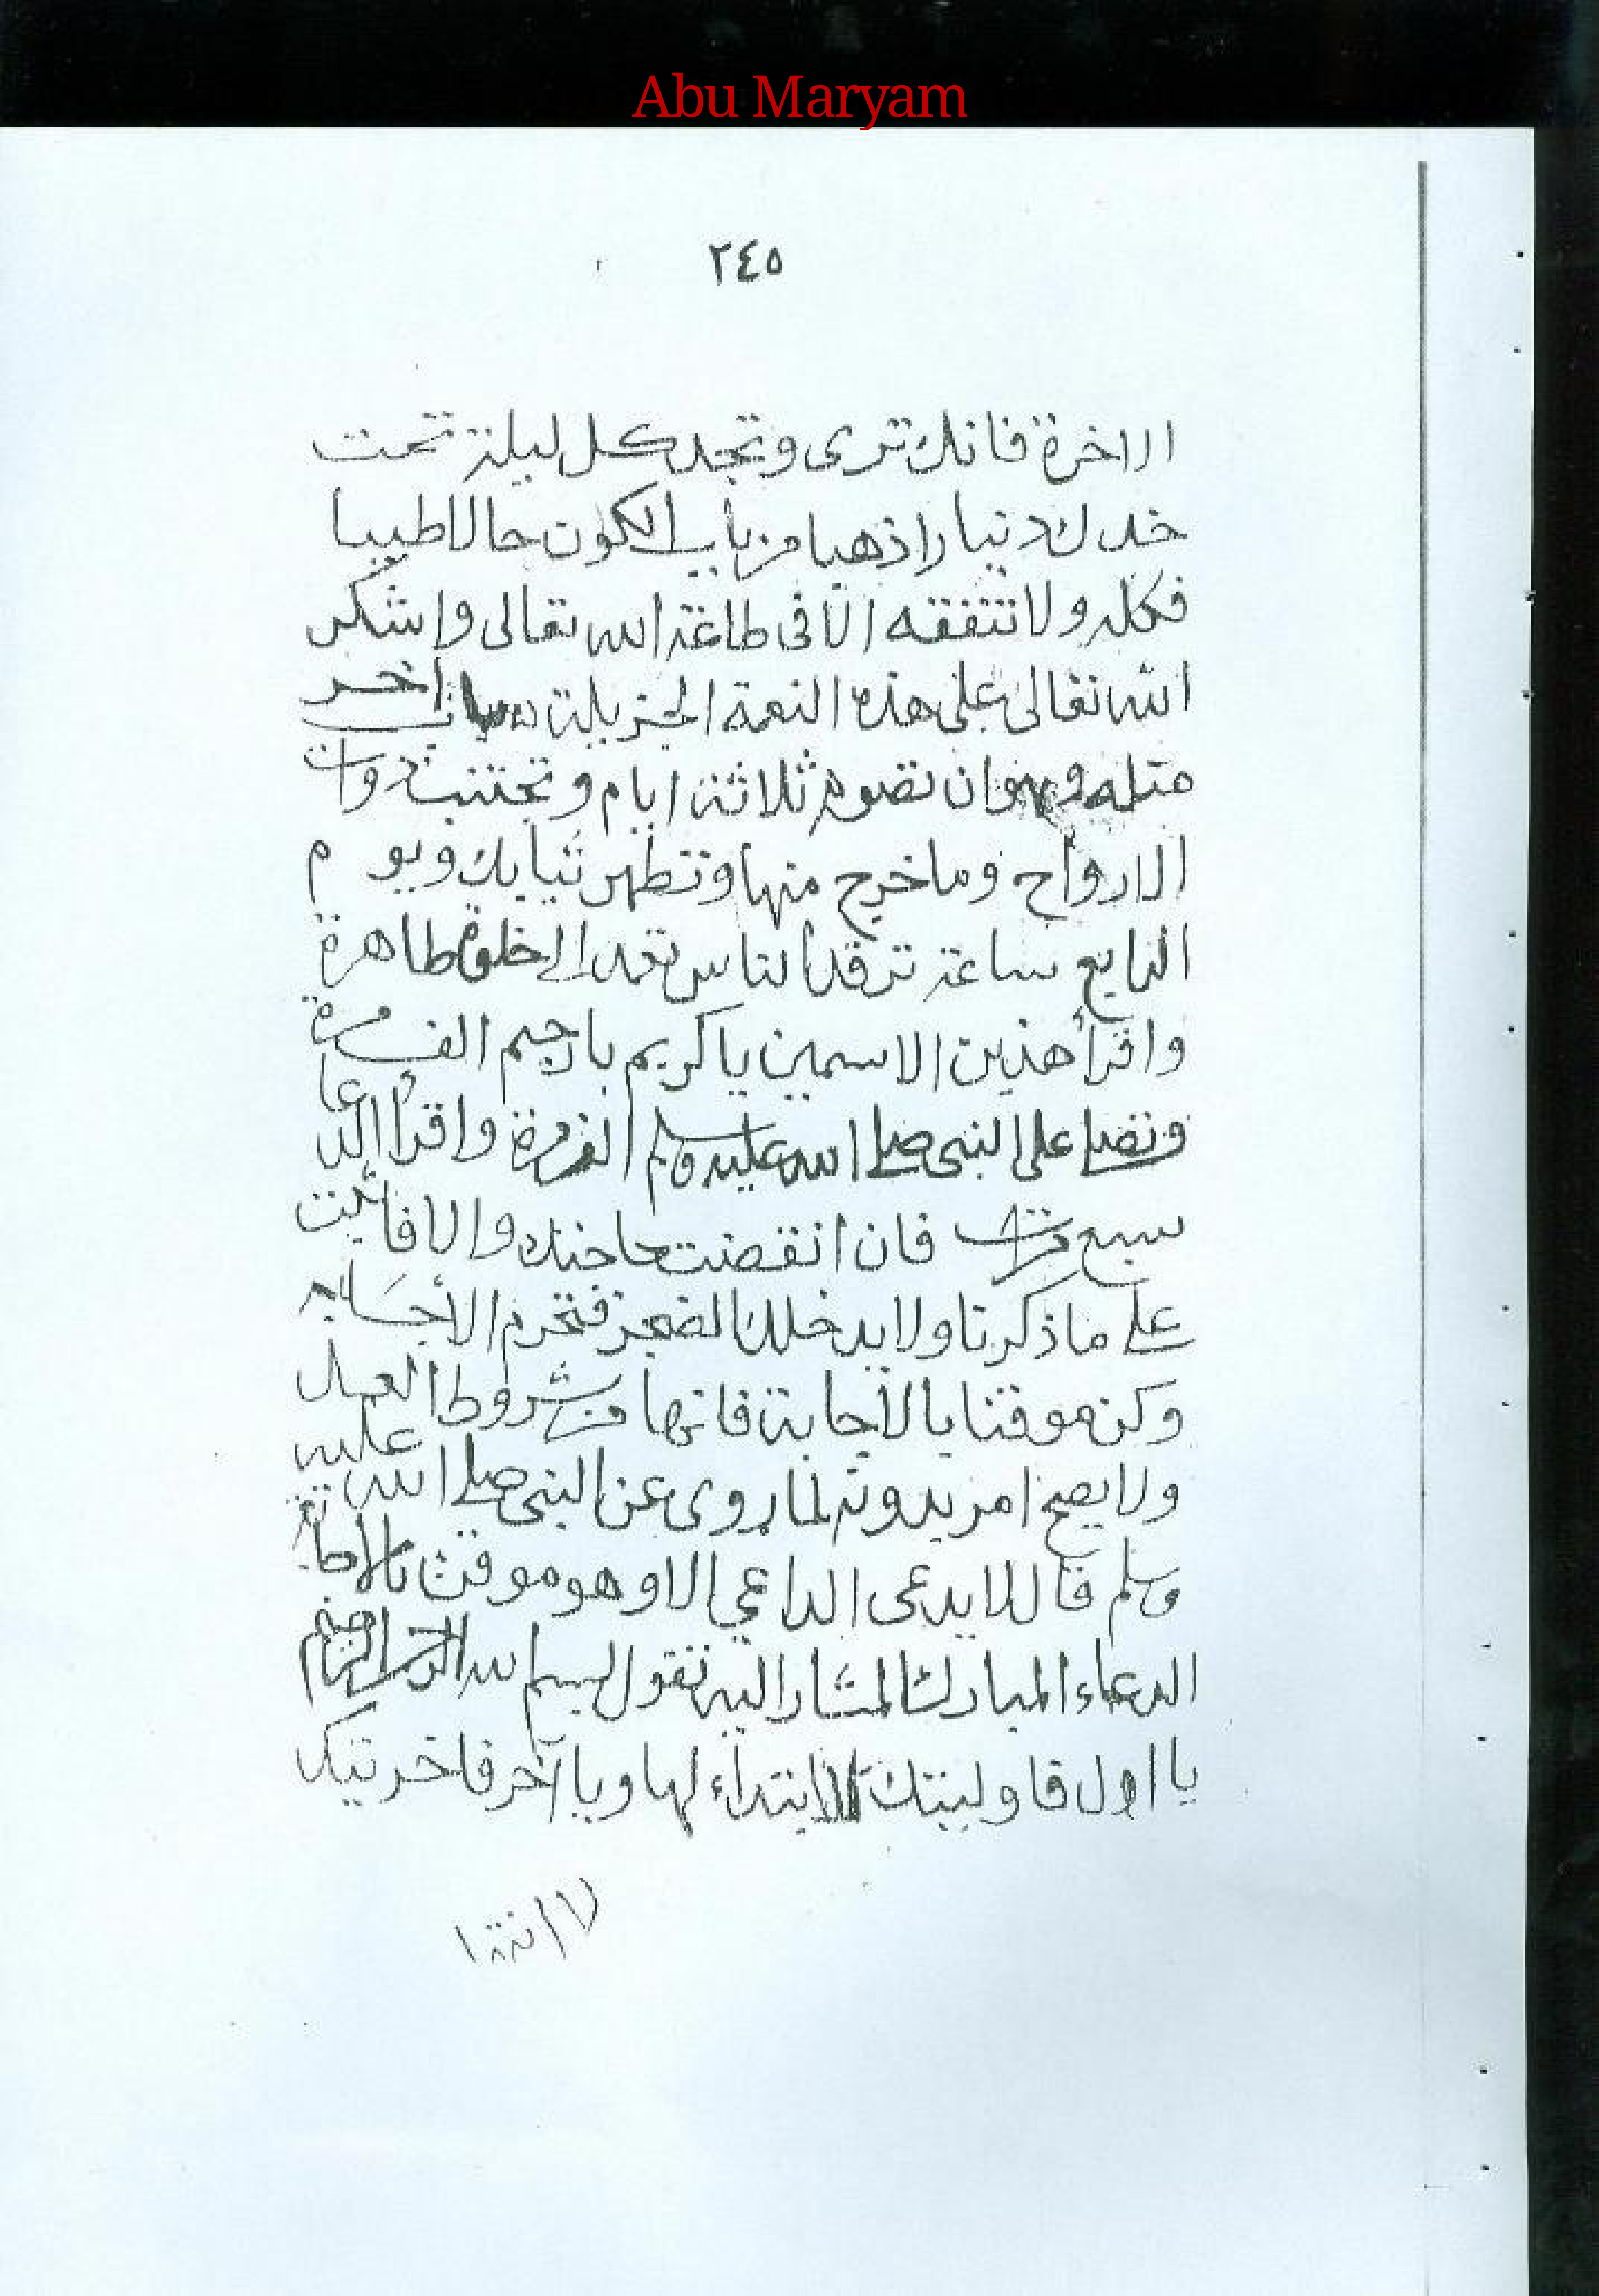 Abu Maryam
٢٤٥
الاخرة فانك ترى وتجد كل ليلة تحت
خدك دينارا ذهبا من باب الكون حالا طيبا
فكله ولا تنفقه الا فى طاعة الله تعالى واشكر
الله تعالى على هذه النعمة الجزيلة باب اخر
مثله وهوان تصوم ثلاثة ايام وتجتنب ذوات
الارواح وما خرج منها وتطهر ثيابك ويوم
الرابع ساعة ترقد الناس تعمد الى خلوة طاهرة
واقرأ هذين الاسمين يا كريم يا رحيم الف مرة
وتصل على النبى صلى الله عليه وسلم الف مرة واقرأ الدعا
سبع مرات فان انقضت حاجتك والا فأثبت
على ما ذكرنا ولا يدخلك الضجز فتحرم الأجابه
وكن موقنا بالأجابة فانها من شروط العمل
ولا يصح امر بدونه لما روى عن النبى صلى الله عليه
وسلم قال لا يدعى الداعي الا وهو موقن بالاجابة
الدعاء المبارك المشار اليه تقول بسم الله الرحمن الرحيم
يا اول فاوليتك لا ابتداء لها ويا آخر فاخريتك
لا انتها